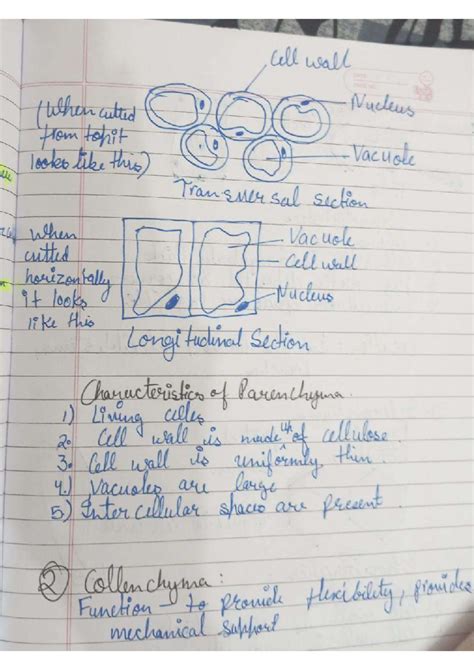 Cell wall
(When cutted
from top it
looks like this)
Nucleus
Vacuole
Transversal section
When
cutted
horizontally
it looks
like this
Vacuole
Cell wall
Nucleus
Longitudinal Section
Characteristics of Parenchyma
1) Living celles
2. Cell wall is made up of cellulose.
3. Cell wall is uniformly thin.
4.) Vacuoles are large
5.) Inter cellular spaces are present.
② Collenchyma:
Function → to provide flexibility, provides
mechanical support